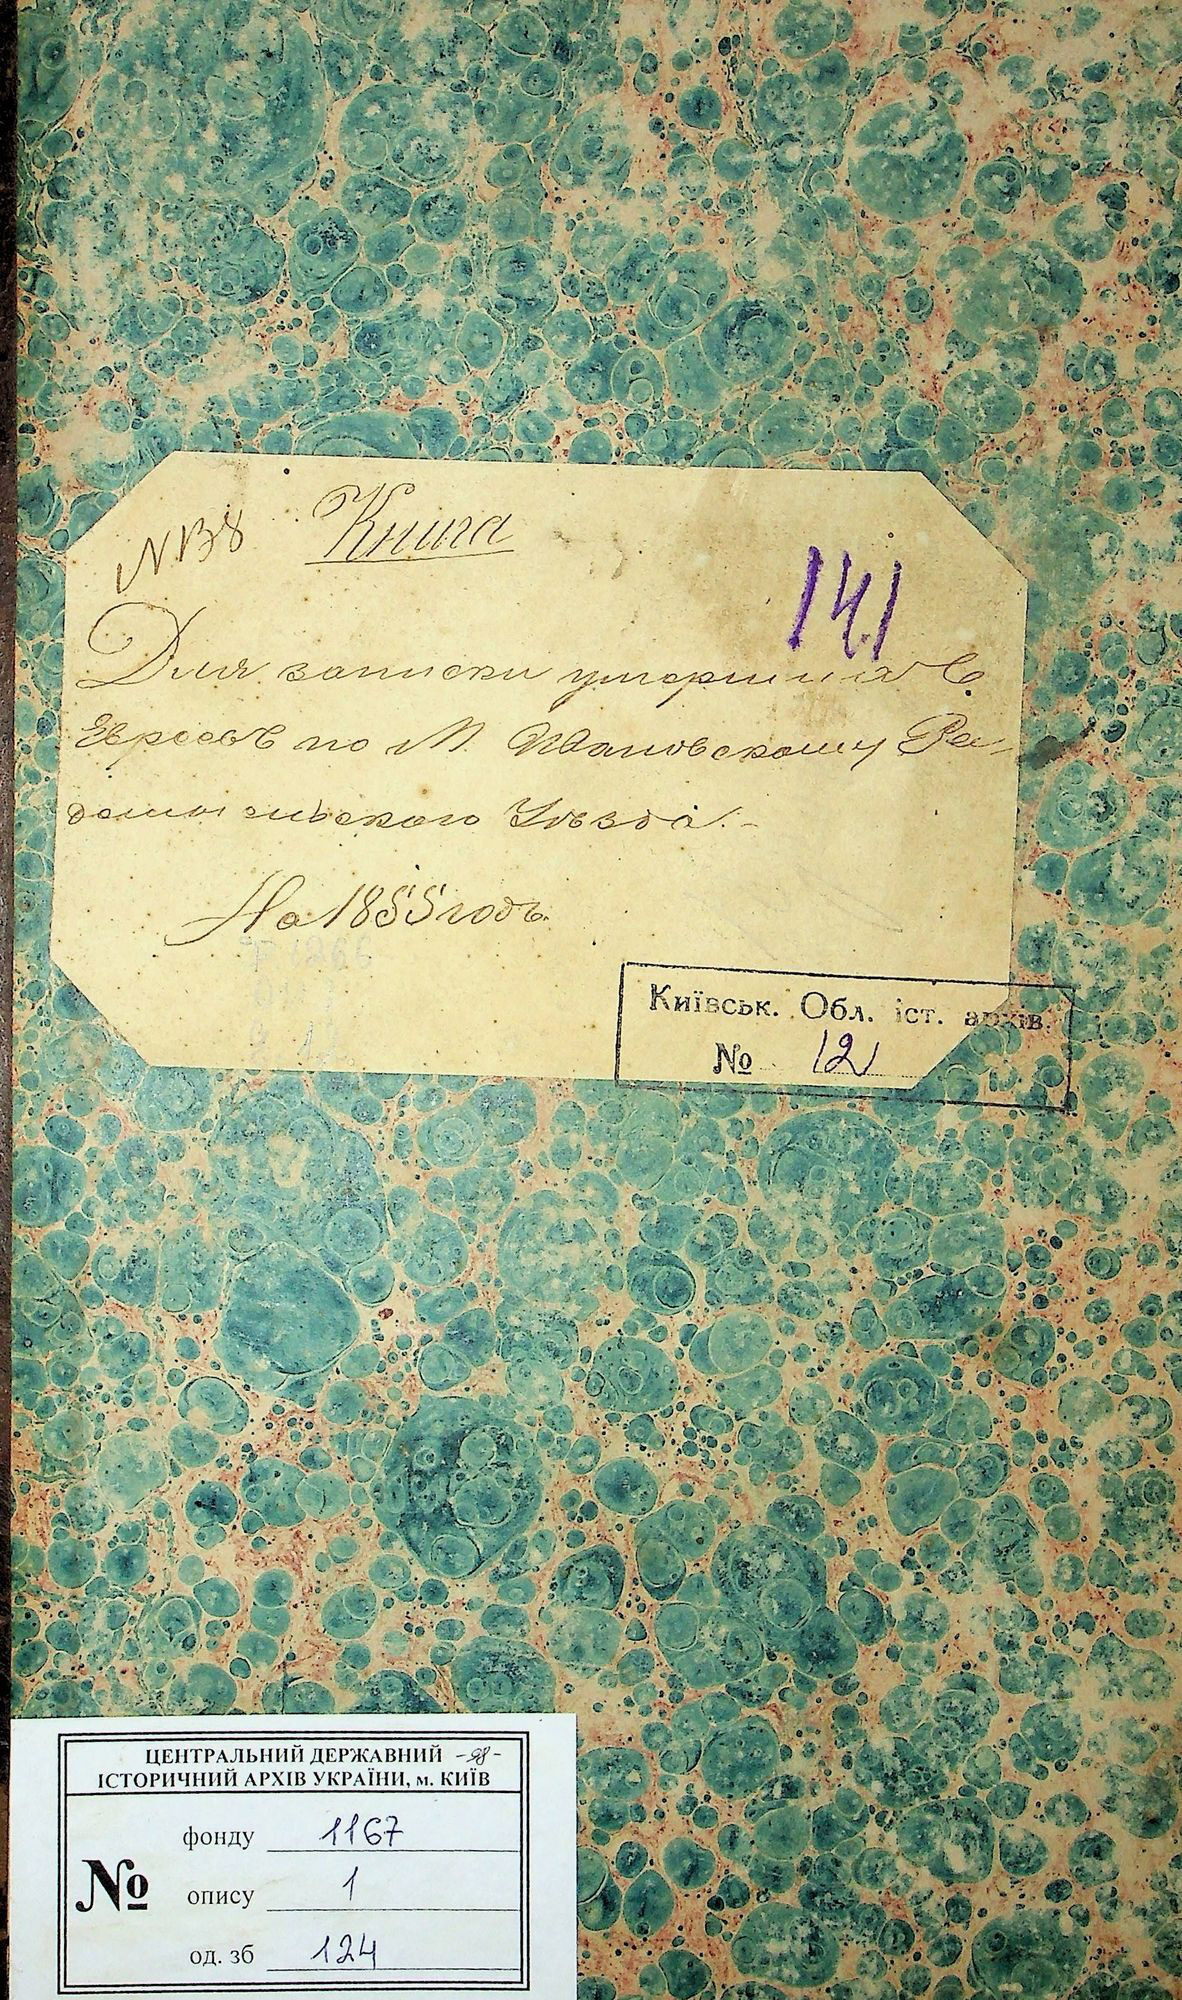 № 138
Книга
141
Для записки умершихъ
Евреевъ по М. Ивановскому Ра-
домысльского Уѣзда.-
На 1855 годъ.
Київськ. Обл. іст. архів.
№ 121
ЦЕНТРАЛЬНИЙ ДЕРЖАВНИЙ -98-
ІСТОРИЧНИЙ АРХІВ УКРАЇНИ, м. КИЇВ
№
фонду 1167
опису 1
од. зб 124